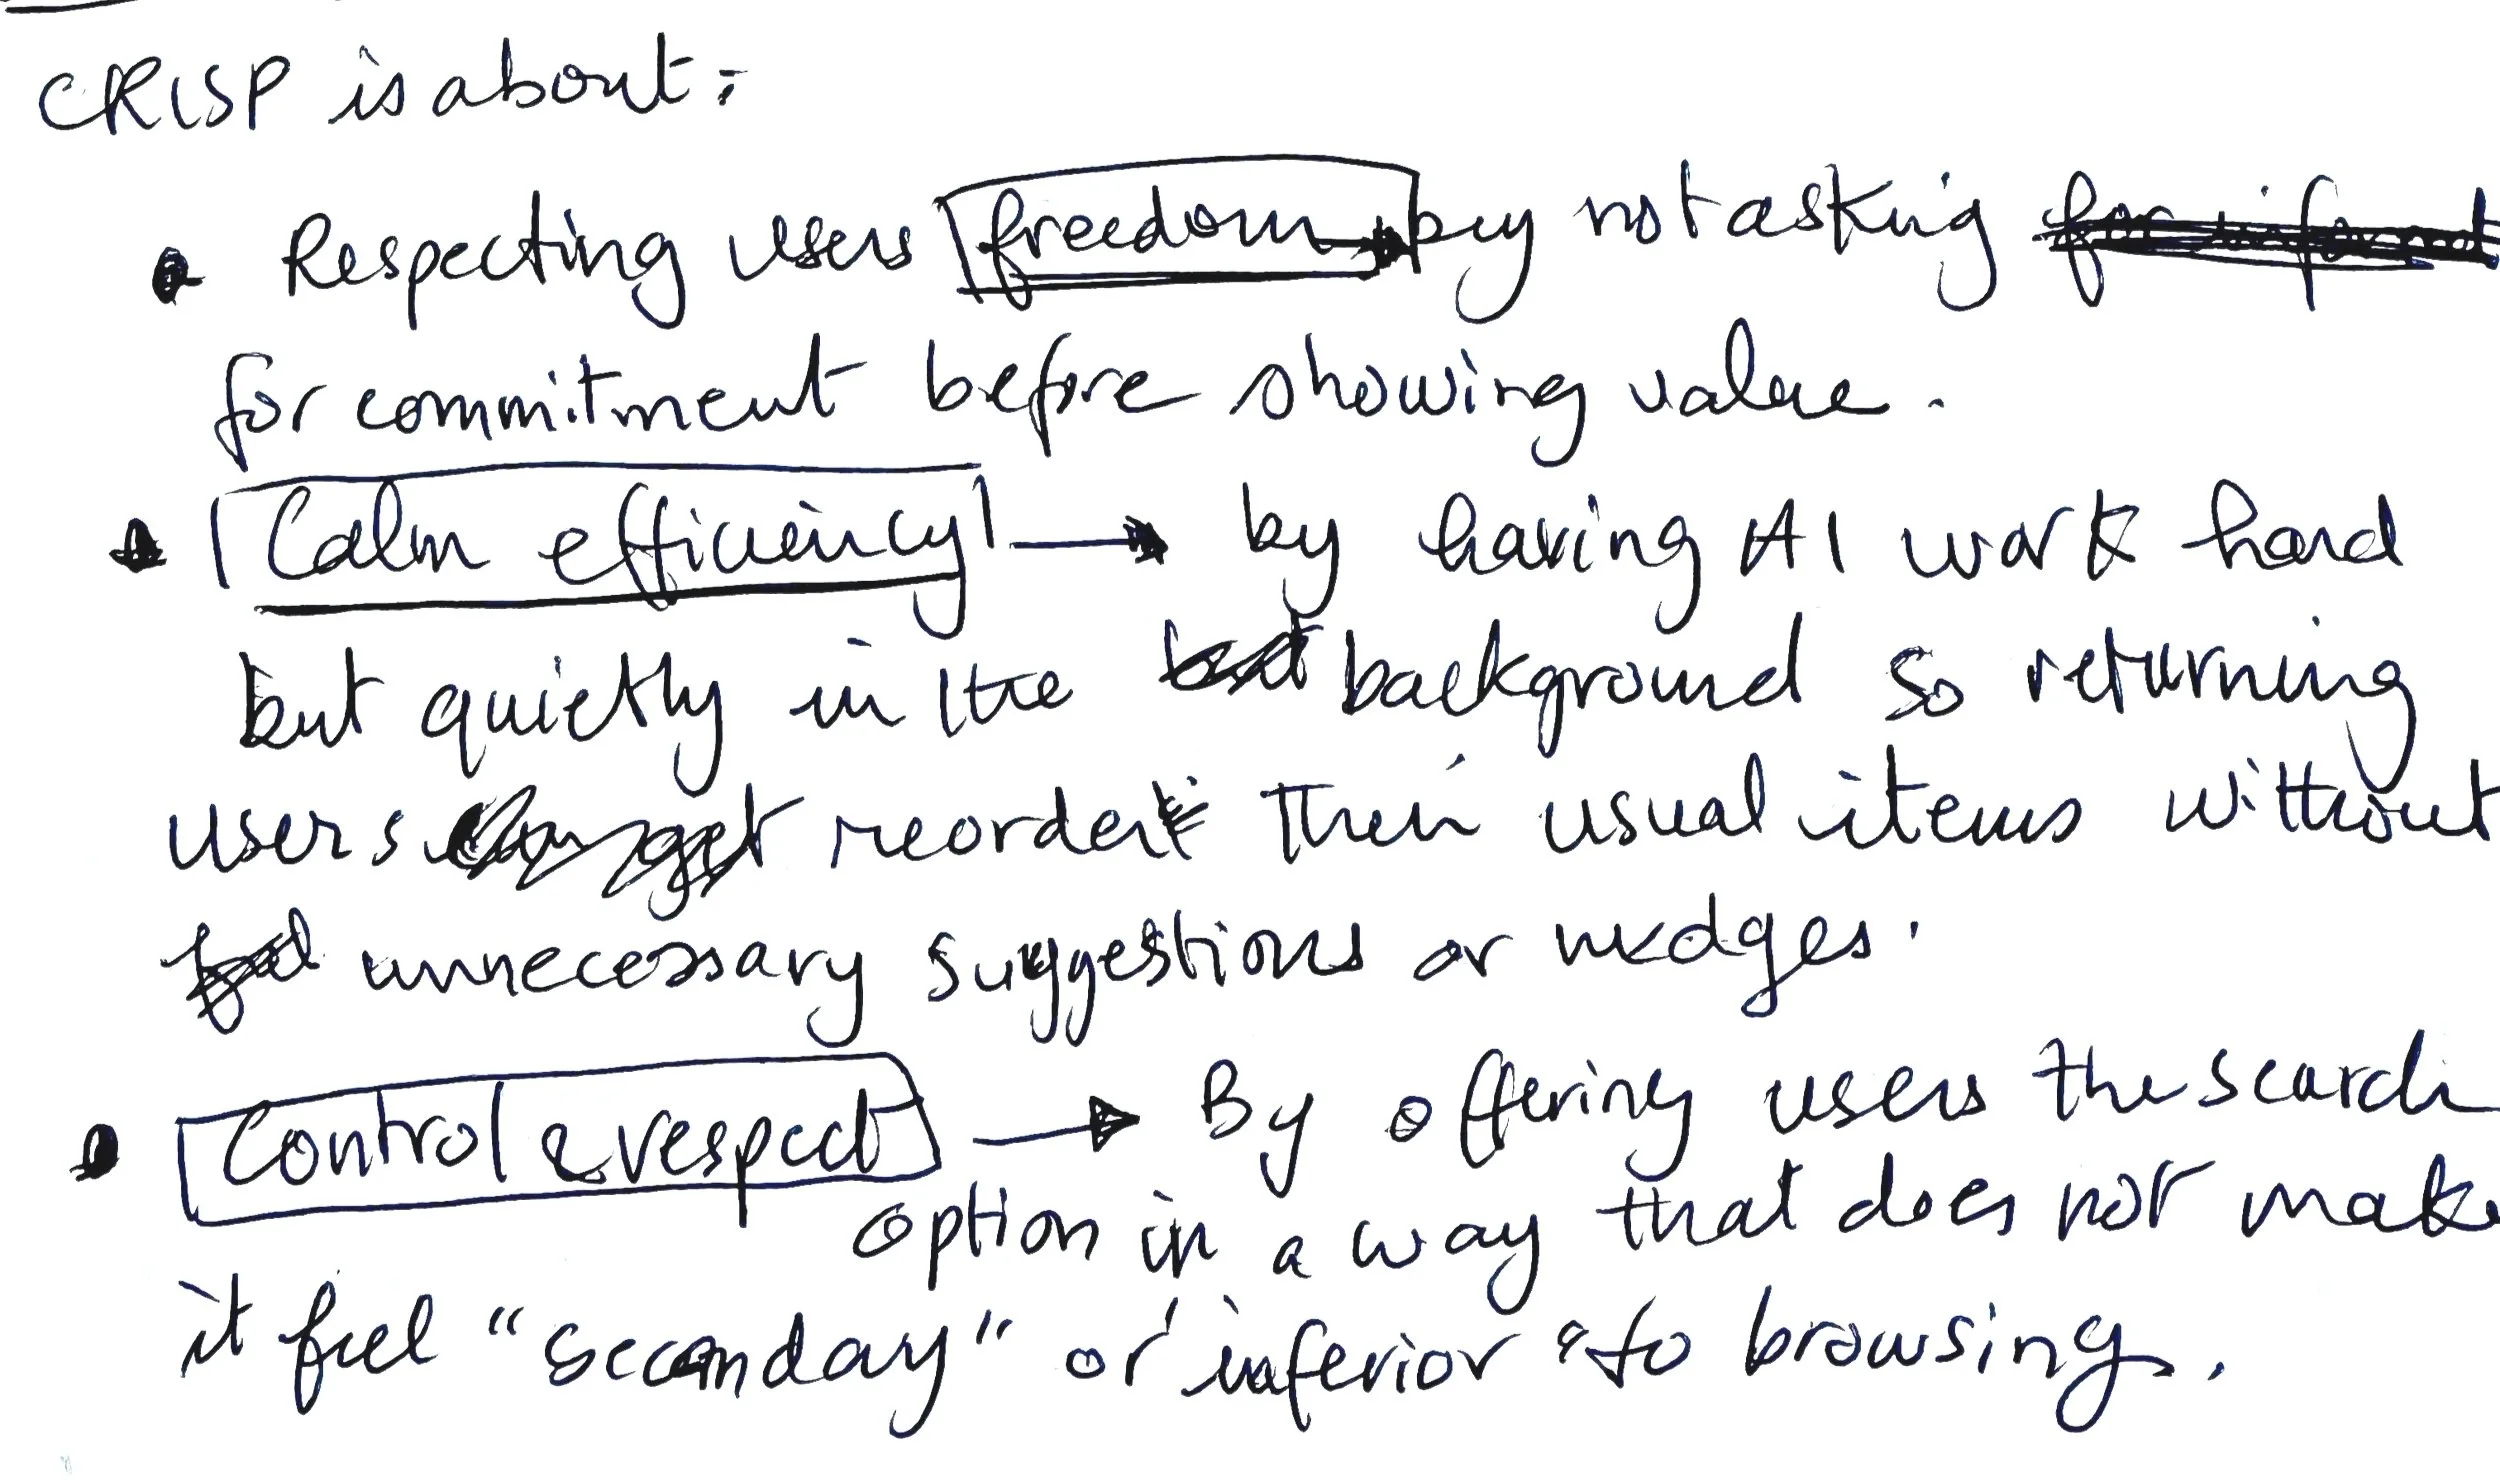 CRISP is about:
• Respecting users freedom → by not asking
for commitment before showing value.
• Calm efficiency → by having AI work hard
but quietly in the background so returning
users reorder their usual items without
unnecessary suggestions or nudges.
• Control & respect → By offering users the search
option in a way that does not make
it feel "seconday" or inferior to browsing.